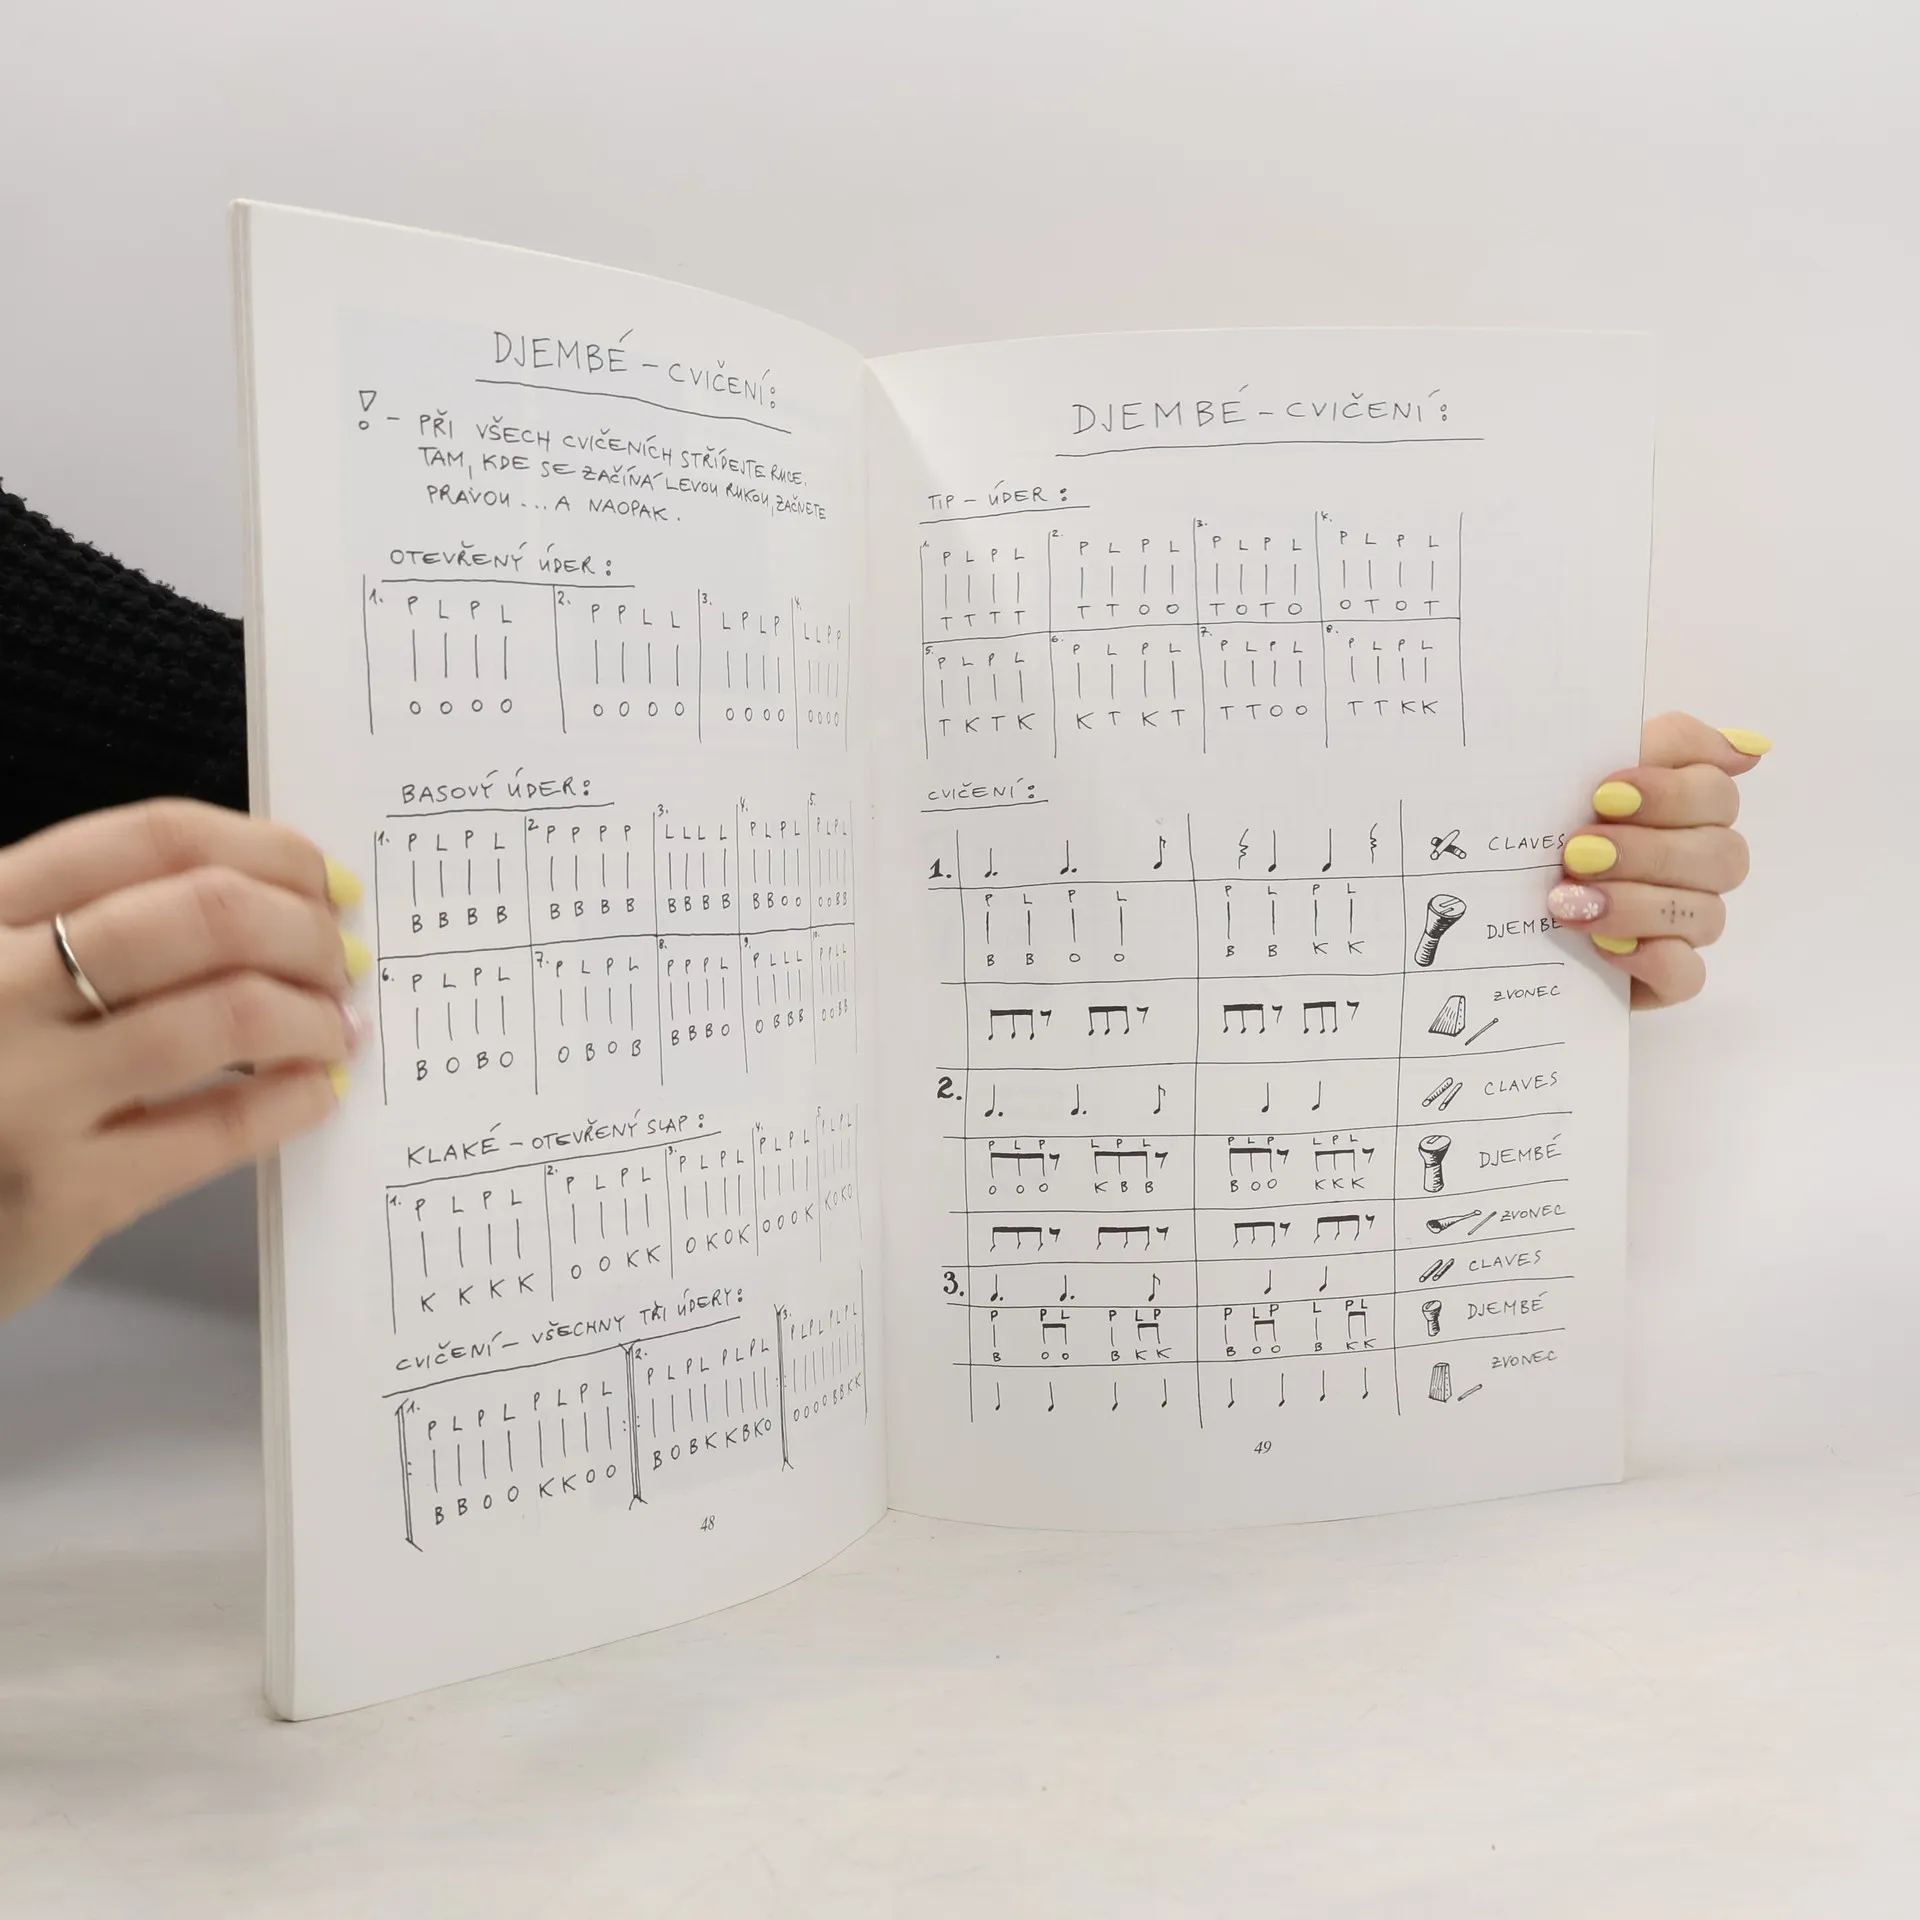 DJEMBÉ – CVIČENÍ:
! – PŘI VŠECH CVIČENÍCH STŘÍDEJTE RUCE.
TAM, KDE SE ZAČÍNÁ LEVOU RUKOU, ZAČNETE
PRAVOU ... A NAOPAK.
OTEVŘENÝ ÚDER:
1. P L P L 2. P P L L 3. L P L P 4. L L P P
O O O O O O O O O O O O O O O O
BASOVÝ ÚDER:
1. P L P L 2. P P P P 3. L L L L 4. P L P L 5. P L P L
B B B B B B B B B B B B B B O O O O B B
6. P L P L 7. P L P L 8. P P P L 9. P L L L 10. P P L L
B O B O O B O B B B B O O B B B O O B B
KLAKÉ – OTEVŘENÝ SLAP:
1. P L P L 2. P L P L 3. P L P L 4. P L P L 5. P L P L
K K K K O O K K O K O K O O O K K O K O
CVIČENÍ – VŠECHNY TŘI ÚDERY:
1. P L P L P L P L 2. P L P L P L P L 3. P L P L P L P L
B B O O K K O O B O B K K B K O O O O O B B K K
48
DJEMBÉ – CVIČENÍ:
TIP – ÚDER:
1. P L P L 2. P L P L 3. P L P L 4. P L P L
T T T T T T O O T O T O O T O T
5. P L P L 6. P L P L 7. P L P L 8. P L P L
T K T K K T K T T T O O T T K K
CVIČENÍ:
1. CLAVES
P L P L P L P L
DJEMBE
B B O O B B K K
ZVONEC
2. CLAVES
P L P L P L P L P L P L
DJEMBÉ
O O O K B B B O O K K K
ZVONEC
3. CLAVES
P P L P L P P L P L P L
DJEMBÉ
B O O B K K B O O B K K
ZVONEC
49